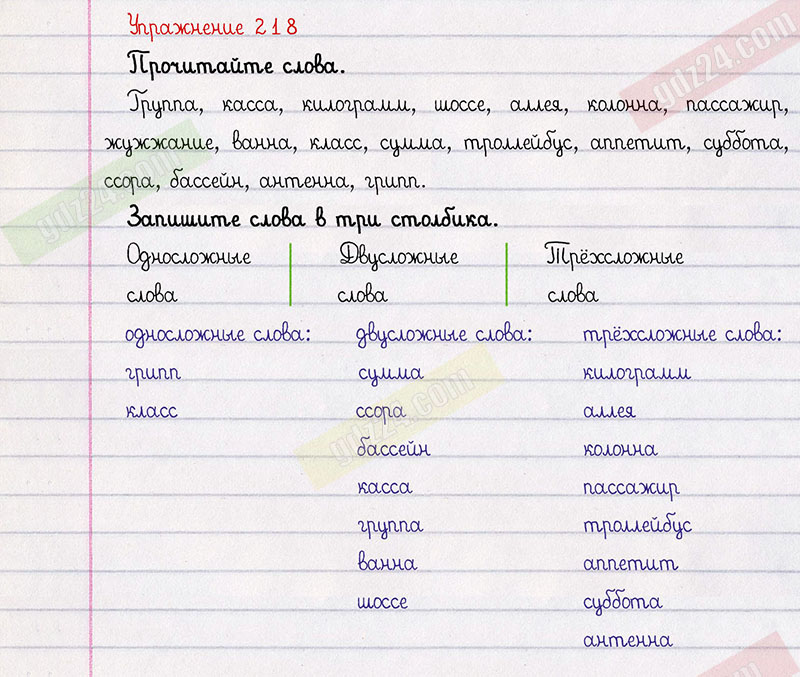 Упражнение 218
Прочитайте слова.
Группа, касса, килограмм, шоссе, аллея, колонна, пассажир,
жужжание, ванна, класс, сумма, троллейбус, аппетит, суббота,
ссора, бассейн, антенна, грипп.
Запишите слова в три столбика.
Односложные Двусложные Трёхсложные
слова слова слова
односложные слова: двусложные слова: трёхсложные слова:
грипп сумма килограмм
класс ссора аллея
бассейн колонна
касса пассажир
группа троллейбус
ванна аппетит
шоссе суббота
антенна
gdz24.com
gdz24.com
gdz24.com
gdz24.com